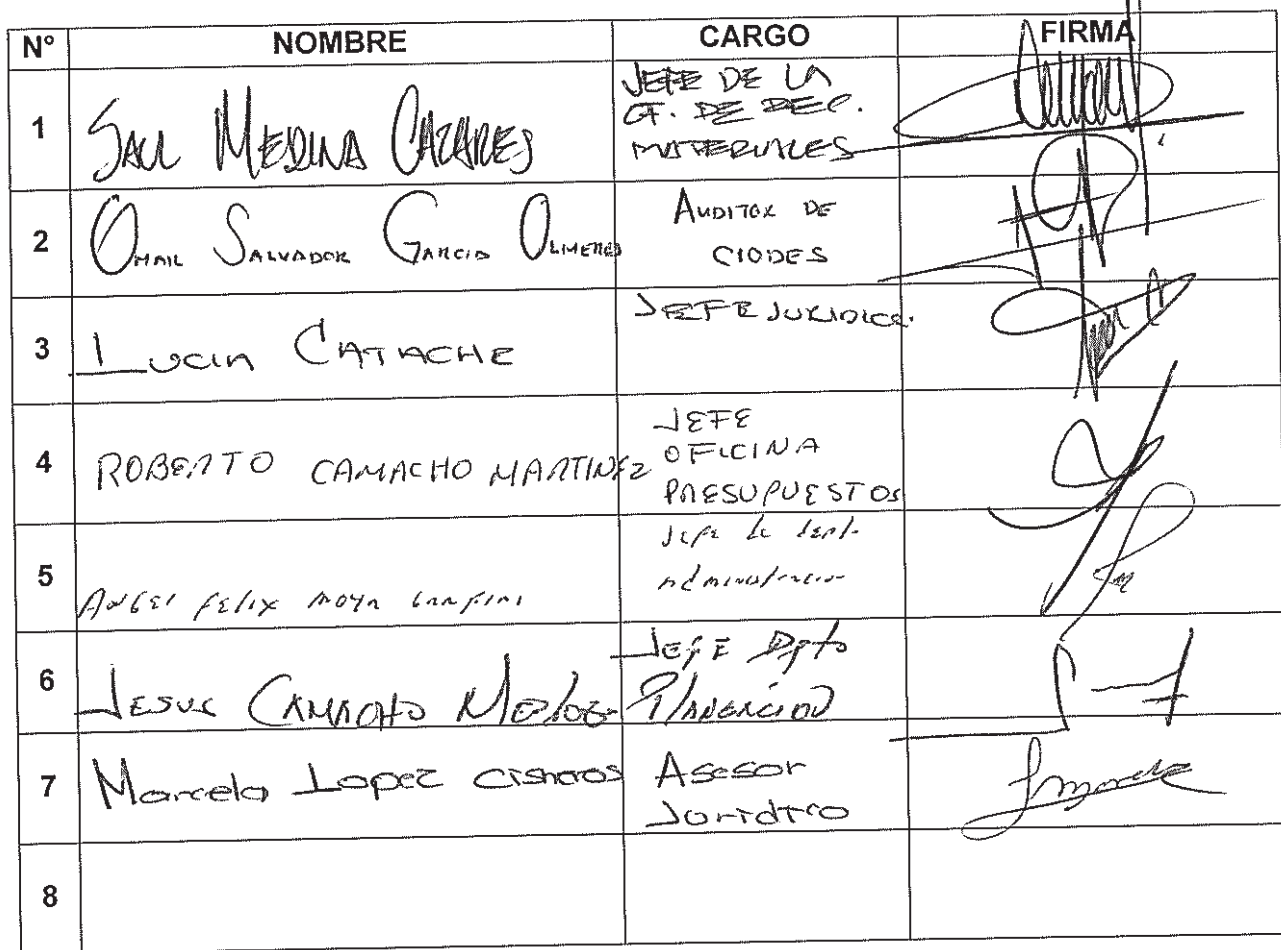 N° NOMBRE CARGO FIRMA
1 SAUL MEDINA CAZARES JEFE DE LA
OF. DE REC.
MATERIALES
2 OMAR SALVADOR GARCIA OLIMEROS AUDITOR DE
CIODES
3 LUCIA CATACHE JEFE JURIDICO.
4 ROBERTO CAMACHO MARTINEZ JEFE
OFICINA
PRESUPUESTOS
5 ANGEL FELIX MOYA Jefe de dept.
administracion
6 JESUS CAMACHO JEFE Dpto
PlANEACION
7 Marcela Lopez Cisneros Asesor
Juridico
8